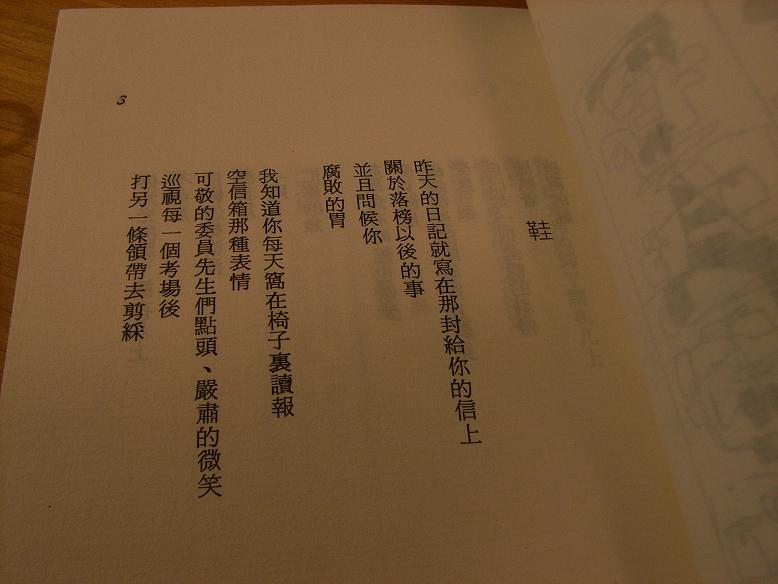 鞋
昨天的日記就寫在那封給你的信上
關於落榜以後的事
並且問候你
腐敗的胃
我知道你每天窩在椅子裏讀報
空信箱那種表情
可敬的委員先生們點頭、嚴肅的微笑
巡視每一個考場後
打另一條領帶去剪綵
3